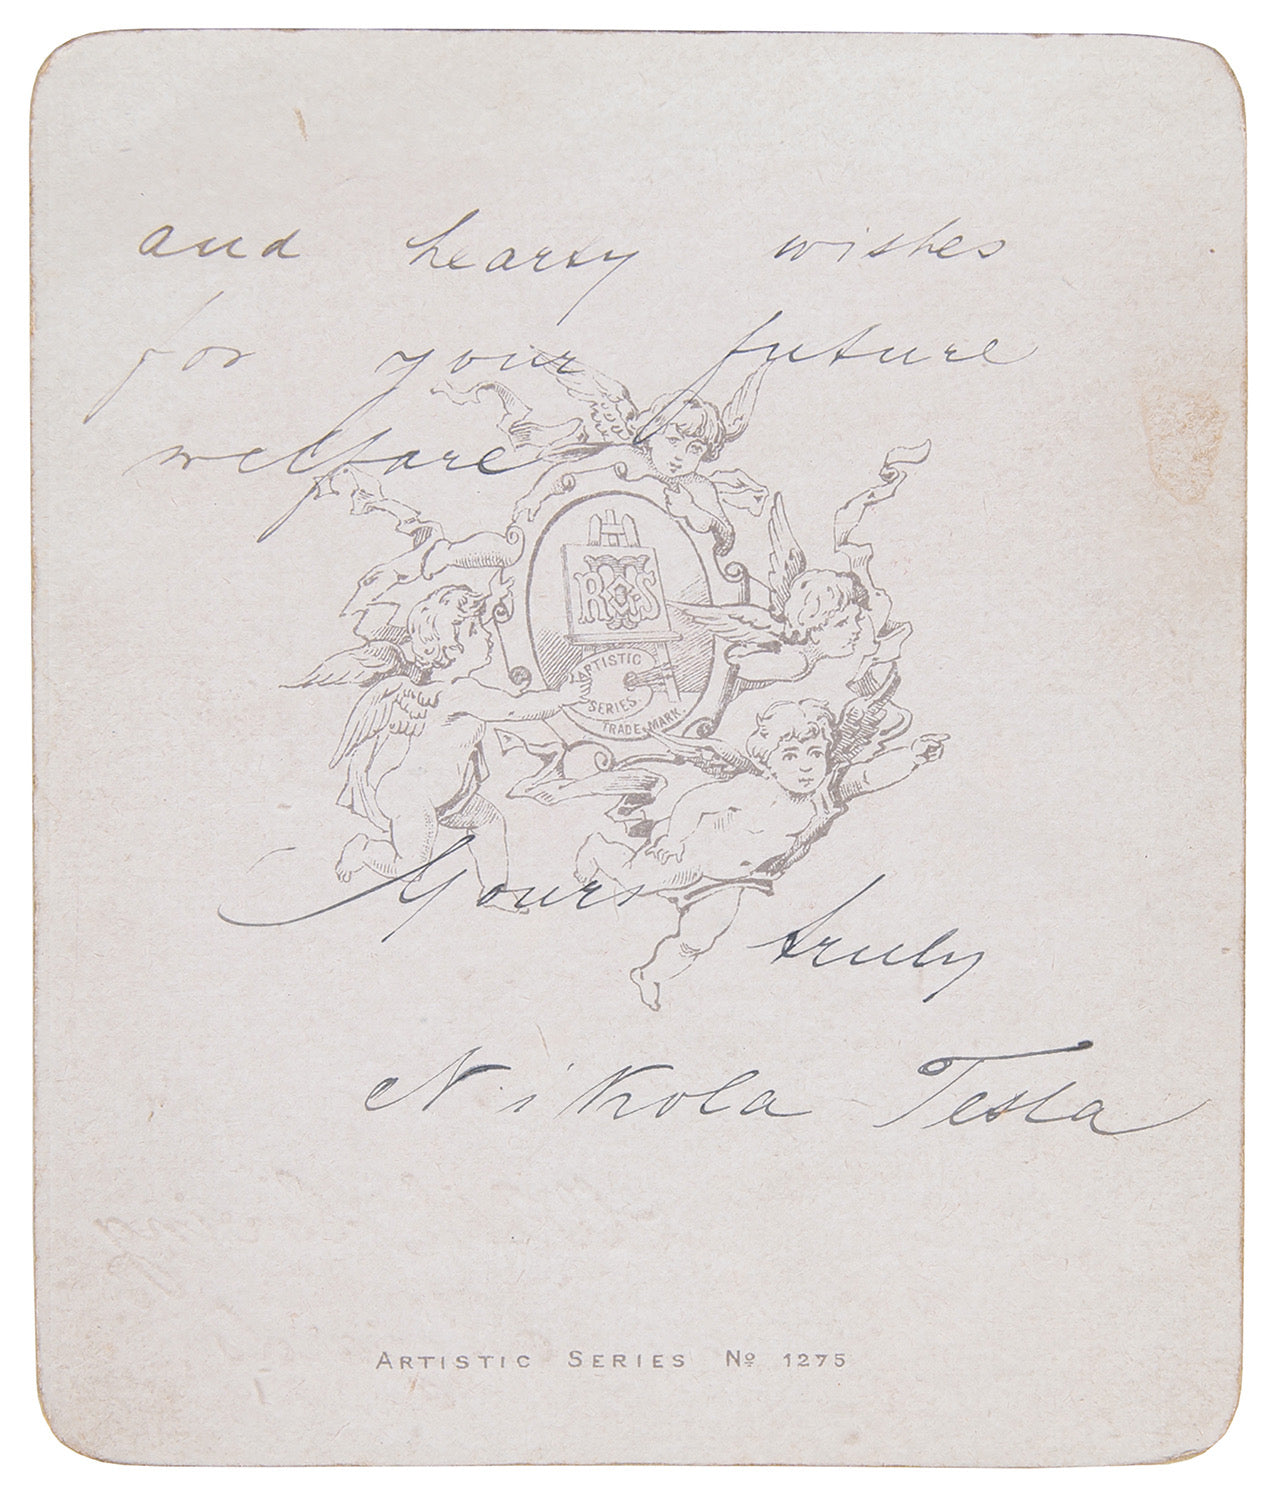 and hearty wishes
for your future
welfare
R&S
ARTISTIC
SERIES.
TRADE MARK.
Yours truly
Nikola Tesla
ARTISTIC SERIES No 1275